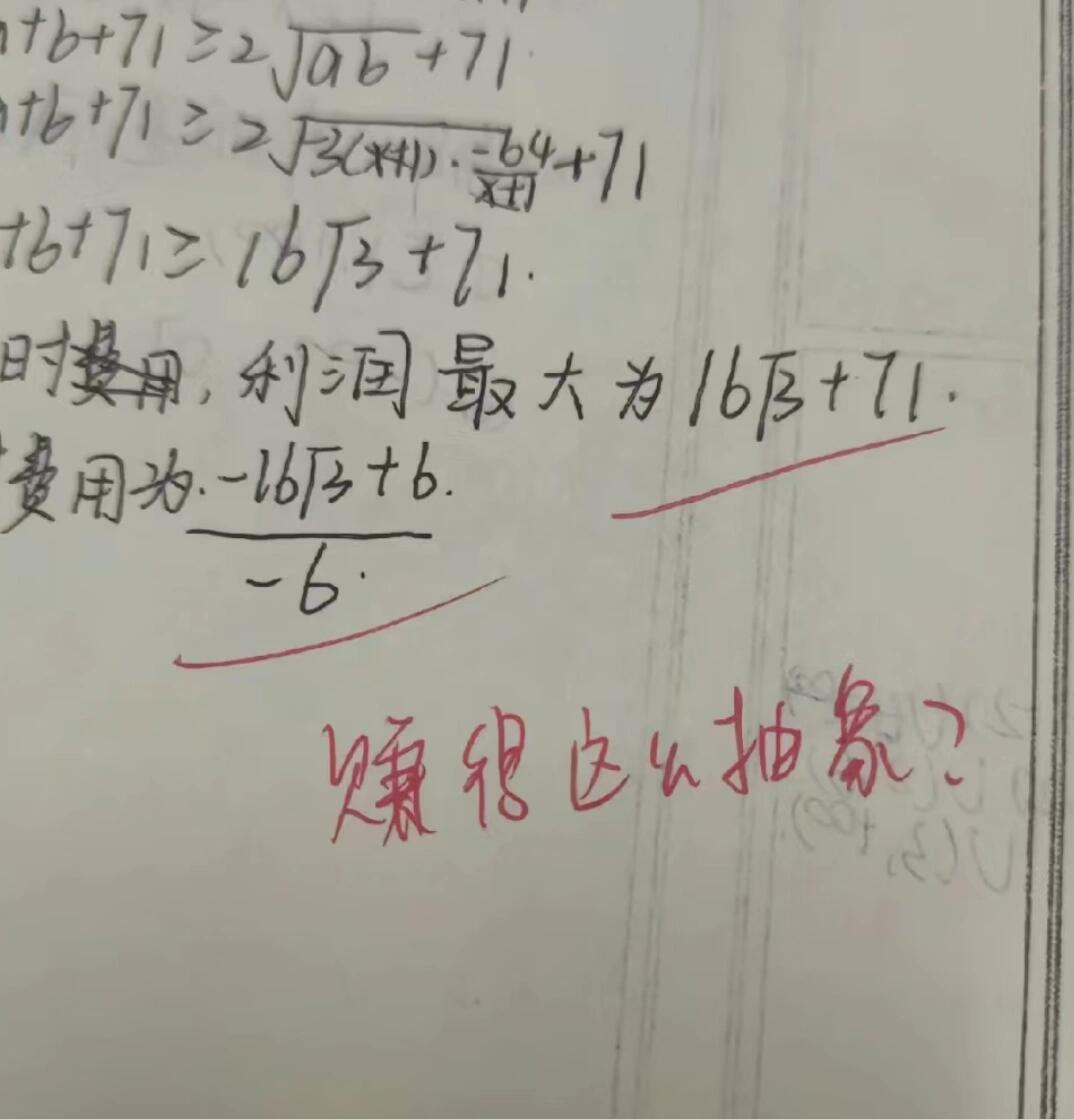 +b+71≥2√ab+71.
+b+71≥2√-3(x+1)·\frac{-64}{x+1}+71
+b+71≥16√3+71.
时, 利润最大为16√3+71.
费用为.\frac{-16√3+6.}{-6.}
赚得这么抽象?